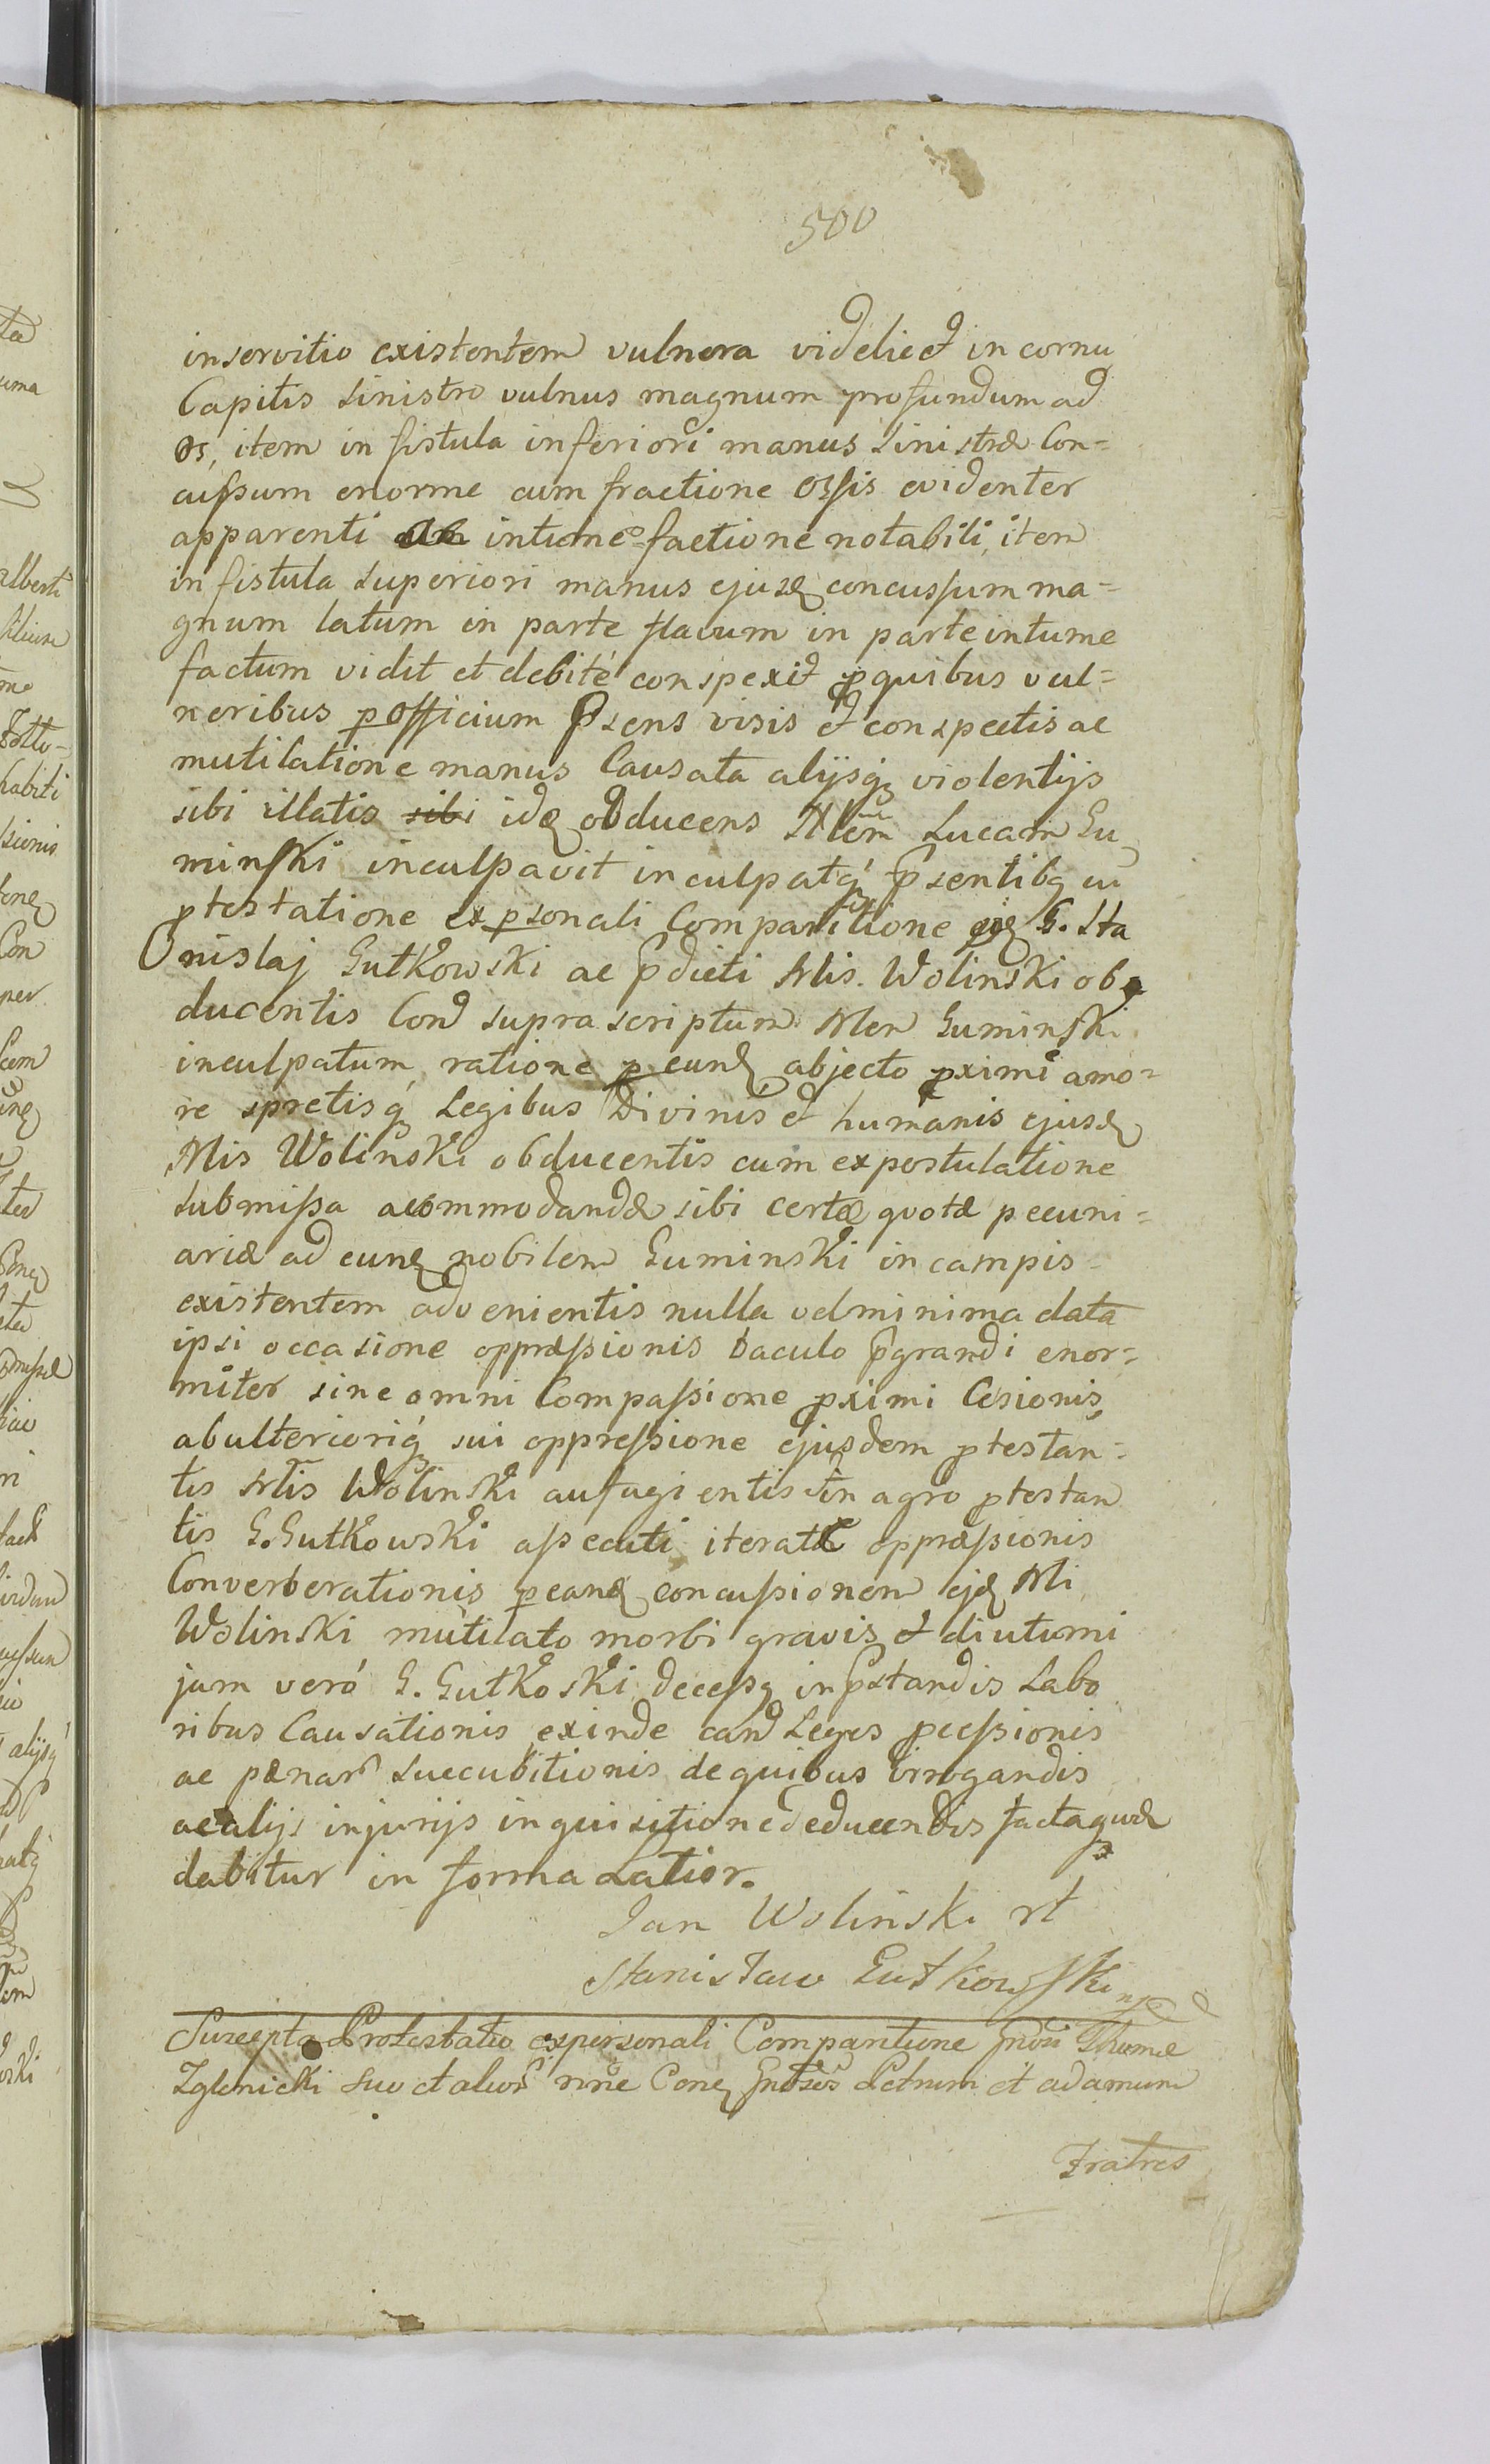 500
inservitio existentem vulnera videlicet in cornu
Capitis sinistro vulnus magnum profundum ad
os, item in fistula inferiori manus sinistræ Con=
cussum enorme cum fractione ossis evidenter
apparenti intume factione notabili, item
in fistula superiori manus ejusq concussum ma=
gnum latum in parte flavum in parte intume
factum vidit et debité conspexit p quibus vul=
neribus p officium Psens visis et conspectis ac
mutilatione manus Causata alijsq violentijs
sibi illatis sibi idq obducens Nlem Lucam Gu
minski inculpavit inculpatq Psentibq in
ptestatione ex psonali Comparitione ejq G. Sta
nislaj Gutkowski ac Pdicti Nlis. Wolinski ob
ducentis Cond supra scriptum Nlem Guminski
inculpatum ratione p eund abjecto pximi amo=
re spretisq Legibus Divinis et humanis ejusd
Nlis Wolinski obducentis cum expostulatione
submissa accommodandæ sibi certæ quotæ pecuni=
ariæ ad eunq nobilem Guminski in campis
existentem advenientis nulla vel minima data
ipsi occasione oppræssionis baculo Pgrandi enor=
miter sine omni Compassione pximi Cesionis,
ab ulterioriq sui oppressione ejusdem ptestan=
tis Nlis Wolinski aufugientis in agro ptestan
tis G. Gutkowski assecuti iteratæ oppræssionis
Converberationis p eand concussionem ejq Nli
Wolinski mutilato morbi gravis et diuturni
jam veró G. Gutkoski decessq in Pstandis Labo
ribus Causationis exinde cand Leges pcessionis
ac pænar succubitionis de quibus irrogandis
ac alijs injurijs inquisitione deducendis facta quæ
dabitur in forma Latior.
Jan Wolinski rt
Stanisław Gutkowski mp
Suscepta Protestatio ex personali Comparitione Gnosi Thomæ
Zglenicki suo et alior nne Conq Gnosos Petrum et Adamum
Fratres